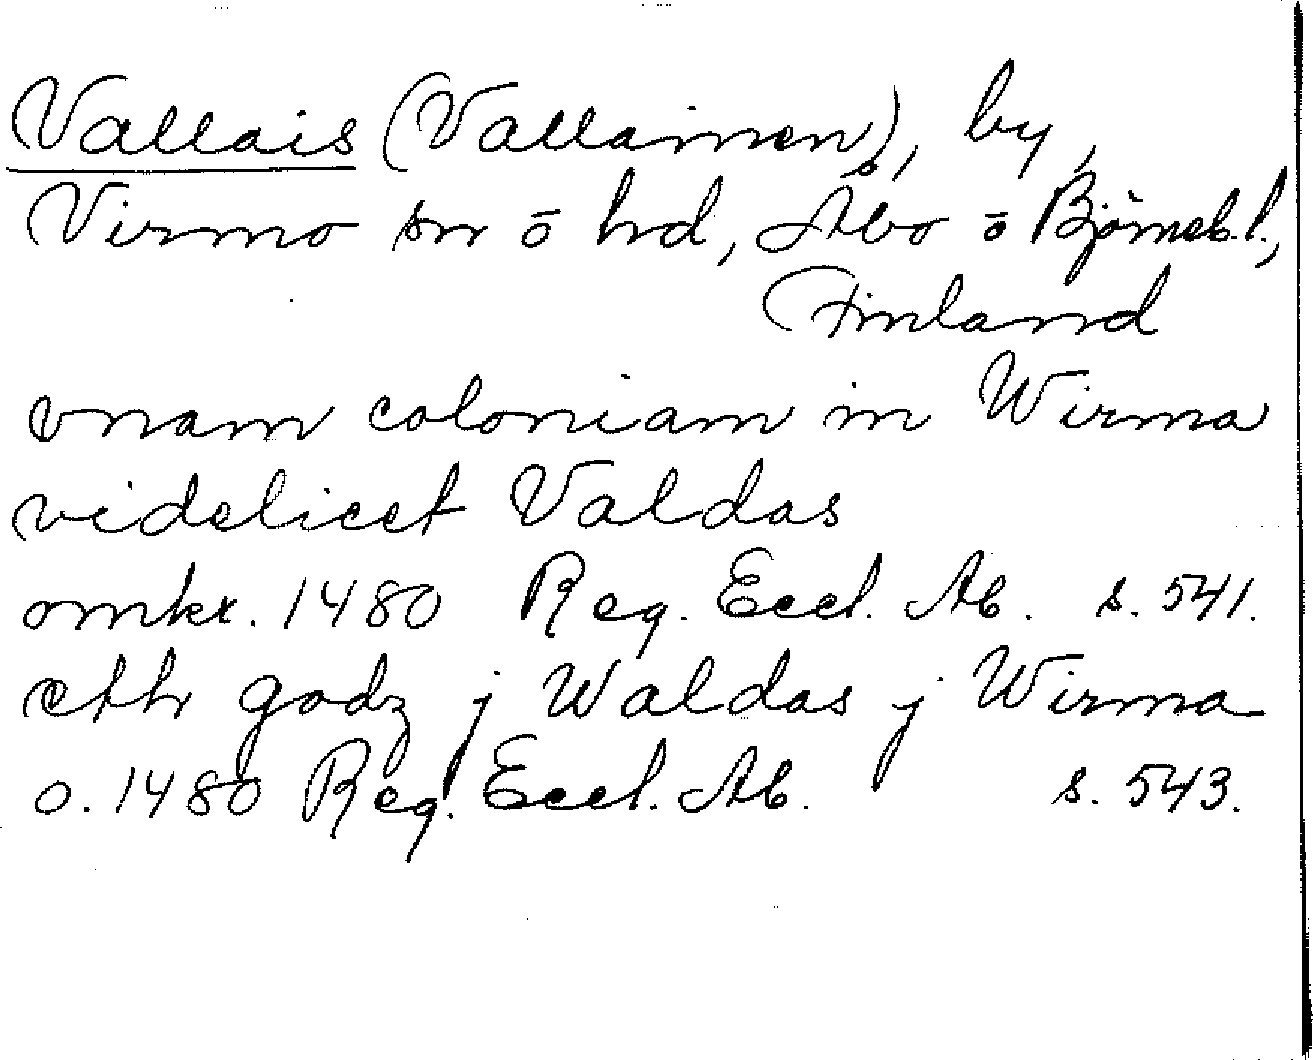 Vallais (Vallainen), by,
Virmo sn o hd, Åbo o Björneb. l.,
Finland
vnam coloniam in Wirma
videlicet Valdas
omkr. 1480 Reg. Eccl. Ab. s. 541.
eth godz j Waldas j Wirma
o. 1480 Reg. Eccl. Ab. s. 543.